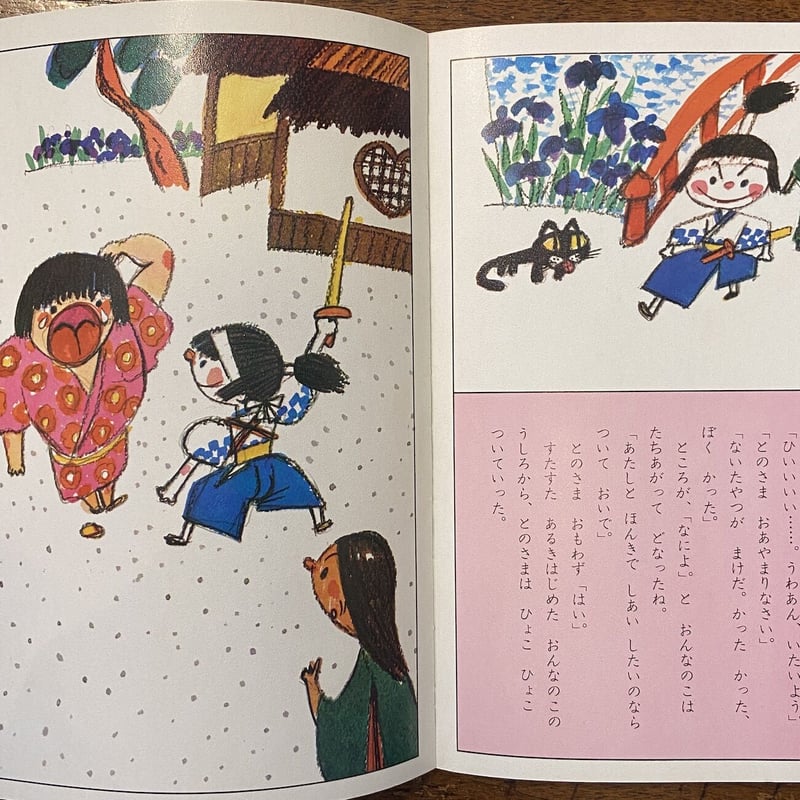 「ひいいいい……。うわあん、いたいよう」
「とのさま　おあやまりなさい。」
「ないたやつが　まけだ。かった　かった、
ぼく　かった」
ところが、「なによ。」と　おんなのこは
たちあがって　どなったね。
「あたしと　ほんきで　しあい　したいのなら
ついて　おいで」。
とのさま　おもわず「はい」。
すたすた　あるきはじめた　おんなのこの
うしろから、とのさまは　ひょこ　ひょこ
ついていった。